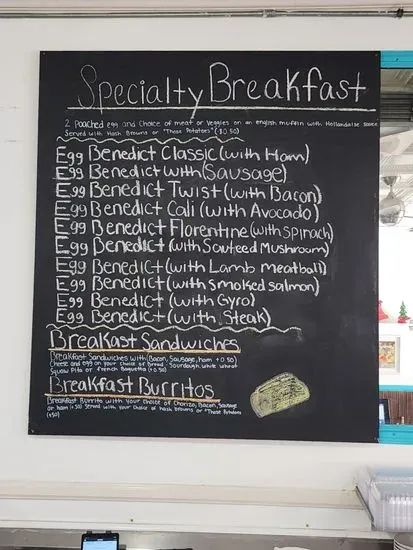 Specialty Breakfast
2 poached egg and choice of meat or veggies on an english muffin with Hollandaise sauce
Served with Hash Browns or "Those Potatoes" ($0.50)
Egg Benedict Classic (with Ham)
Egg Benedict with (Sausage)
Egg Benedict Twist (with Bacon)
Egg Benedict Cali (with Avocado)
Egg Benedict Florentine (with spinach)
Egg Benedict (with Sauteed Mushroom)
Egg Benedict (with Lamb meatball)
Egg Benedict (with smoked salmon)
Egg Benedict (with Gyro)
Egg Benedict (with Steak)
Breakast Sandwiches
Breakfast Sandwiches with (Bacon, Sausage, ham + 0.50)
Cheese and egg on your choice of bread. Sourdough, white wheat
Squaw Pita or french Baguetta (+0.50)
Breakfast Burritos
Breakfast Burrito with your choice of Chorizo, Bacon, Sausage
or ham (+.50) Served with your choice of hash browns or "Those Potatoes
(+.50)